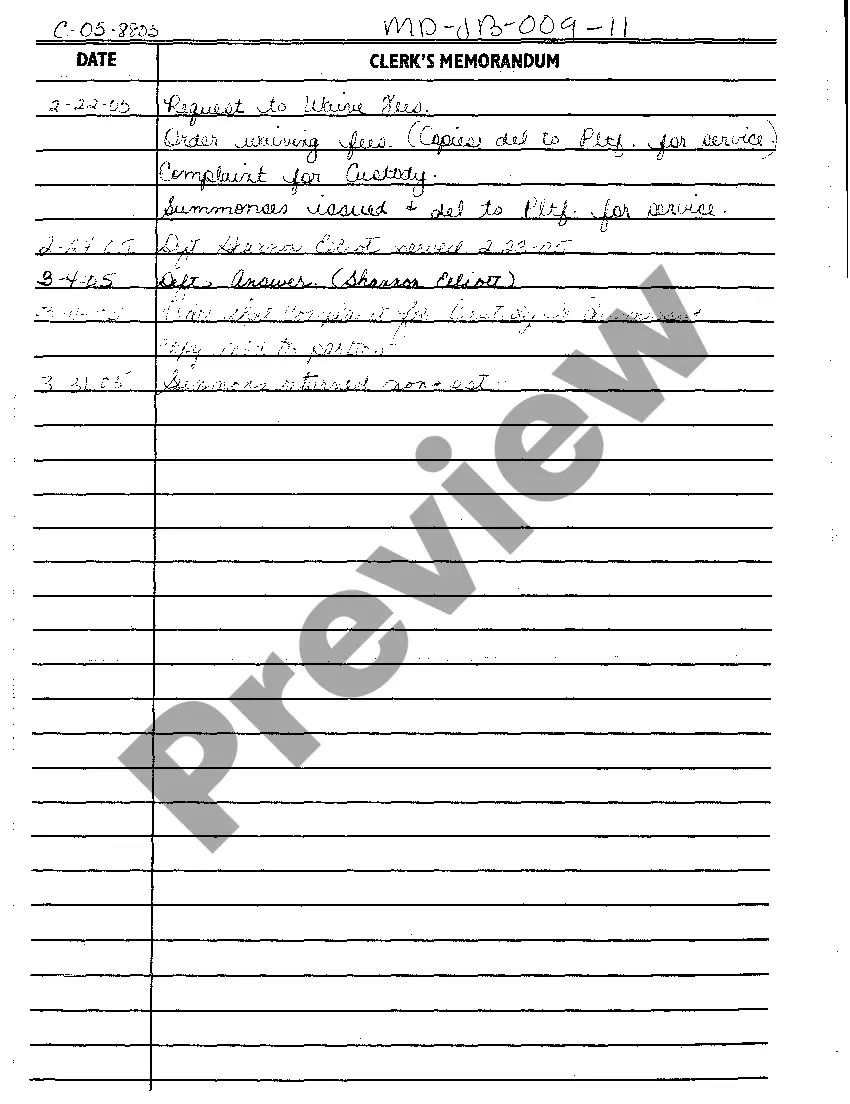 C-05-8805 MD-JB-009-11
DATE CLERK'S MEMORANDUM
2-22-05 Request to Waive Fees.
Order waiving fees. (Copies del to Pltf. for service)
Complaint for Custody.
Summonses issued + del to Pltf. for service.
2-24-05 Dft Sharron Elliott served 2-23-05
3-4-05 Deft. Answer. (Sharron Elliott)
that Complaint for Custody is
Copy mld to parties
3-31-05 Summons returned non-est.
Preview